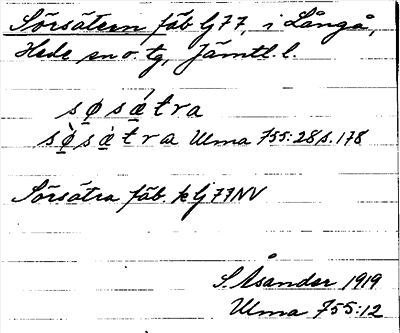 Sörsätern fäb lj 77, i Långå,
Hede sn o. tg, Jämtl. l.
sø̱sǽ̱tra
sø̱̀sæ̱̀tra Ulma 755:28 s. 178
Sörsätra fäb. k lj 77 NV
S. Åsander 1919
Ulma 755:12